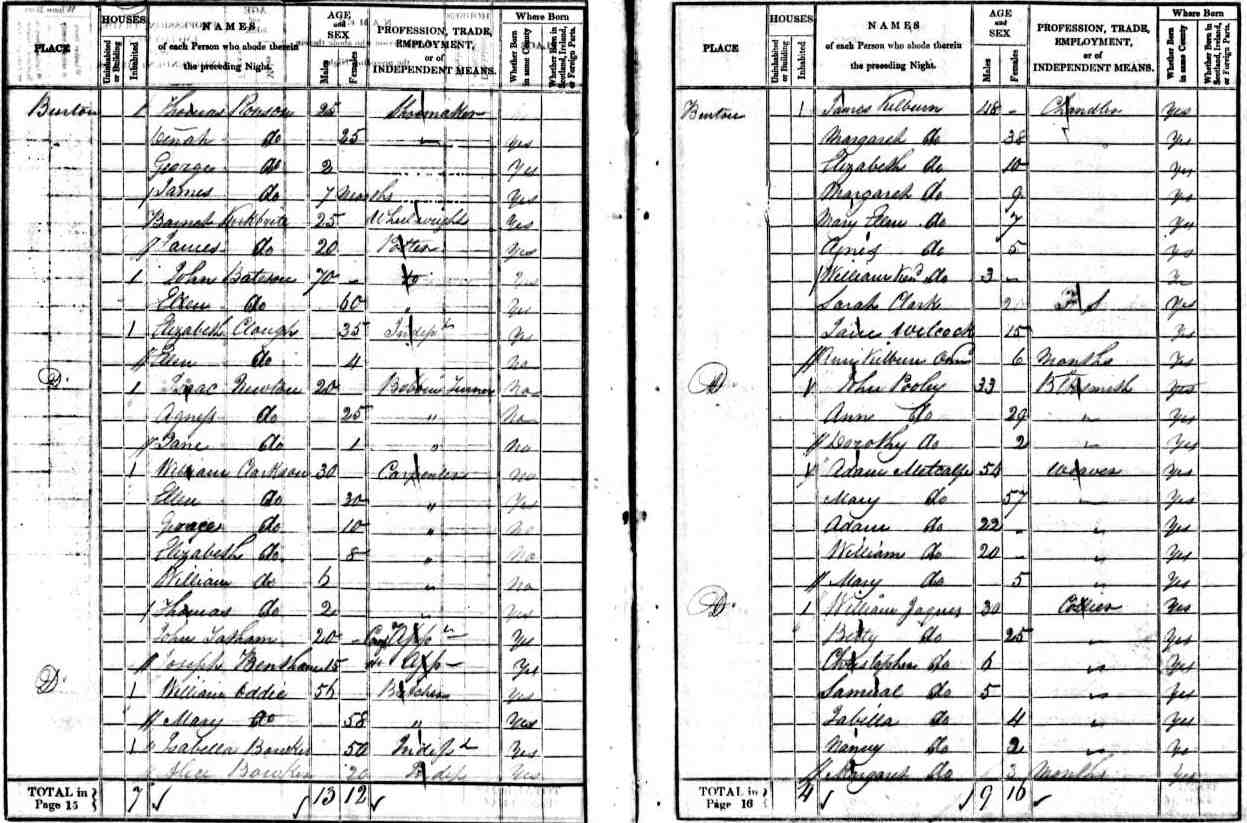 HOUSES
NAMES
AGE and SEX
PROFESSION, TRADE, EMPLOYMENT, or of INDEPENDENT MEANS.
Where Born
PLACE
Uninhabited or Building
Inhabited
of each Person who abode therein the preceding Night.
Males
Females
Whether Born in same County
Whether Born in Scotland, Ireland, or Foreign Parts.
Burton 1 Thomas 25 Shoemaker
do 25 " Yes
George do 2 Yes
James do 7 Months Yes
25 Wheelwright Yes
James do 20 Potter Yes
1 John Bateson 70 - do Yes
Ellen do 60 " Yes
1 Elizabeth Clough 35 Indept Yes
Ellen do 4 No
Do 1 Isaac Newton 20 Bobbin Turner No
Agness do 25 " No
Jane do 1 " No
1 William Clarkson 30 Carpenter No
Ellen do 30 " Yes
Grace do 10 " No
Elizabeth do 8 " No
William do 6 " No
Thomas do 2 " Yes
John Tatham 20 - App Yes
Joseph Bentham 15 App Yes
Do 1 William Eddie 56 Butcher Yes
Mary do 58 " Yes
1 Isabella Bowker 50 Indept Yes
Alice Bowker 20 Indep Yes
TOTAL in Page 15 } 7 13 12
HOUSES
NAMES
AGE and SEX
PROFESSION, TRADE, EMPLOYMENT, or of INDEPENDENT MEANS.
Where Born
PLACE
Uninhabited or Building
Inhabited
of each Person who abode therein the preceding Night.
Males
Females
Whether Born in same County
Whether Born in Scotland, Ireland, or Foreign Parts.
Burton 1 James Kilburn 48 - Chandler Yes
Margaret do 38 Yes
Elizabeth do 10 Yes
Margaret do 9 Yes
Mary Ellen do 7 Yes
Agnes do 5 Yes
William do 3 -
Sarah Clark F S Yes
Jane Wilcock 15 Yes
Ann Kilburn 6 Months Yes
Do 1 John Pooley 33 Blksmith Yes
Anne do 29 " Yes
Dorothy do 2 " Yes
1 Adam Metcalfe 54 Weaver Yes
Mary do 57 " Yes
Adam do 22 - " Yes
William do 20 - " Yes
Mary do 5 " Yes
Do 1 William Jaques 30 Collier Yes
Betty do 25 " Yes
Christopher do 6 " Yes
Samual do 5 " Yes
Isabella do 4 " Yes
Nancy do 2 " Yes
Margaret do 3 Months Yes
TOTAL in Page 16 } 4 9 16